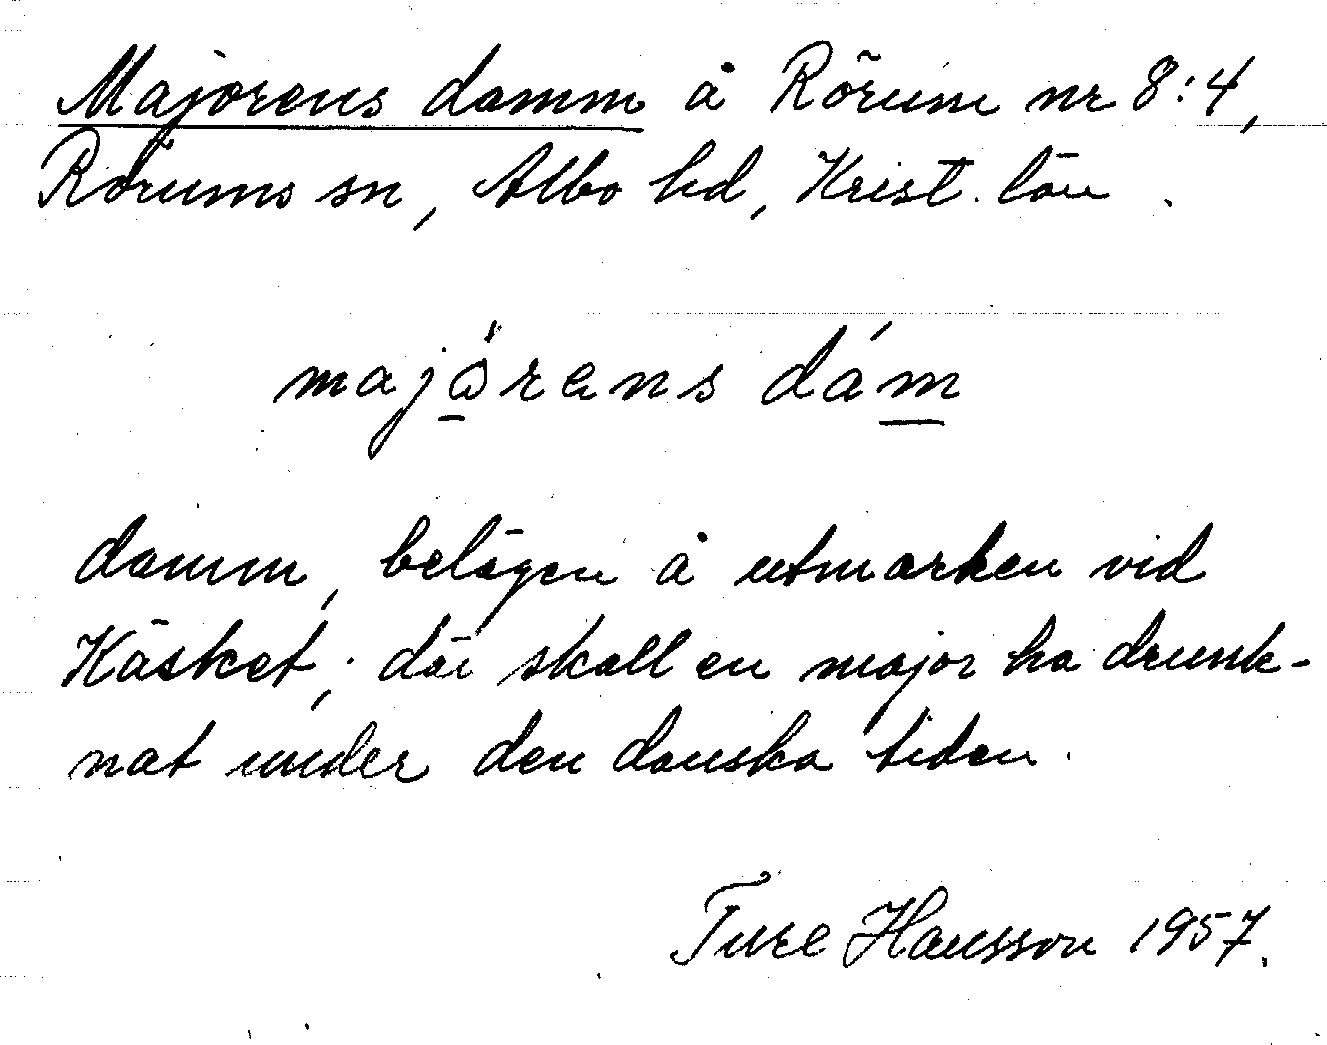 Majorens damm å Rörum nr 8:4,
Rörums sn, Albo hd, Krist. län.
majó̱rens dám̱
damm, belägen å utmarken vid
Käsket; där skall en major ha drunk-
nat under den danska tiden.
Ture Hansson 1957.